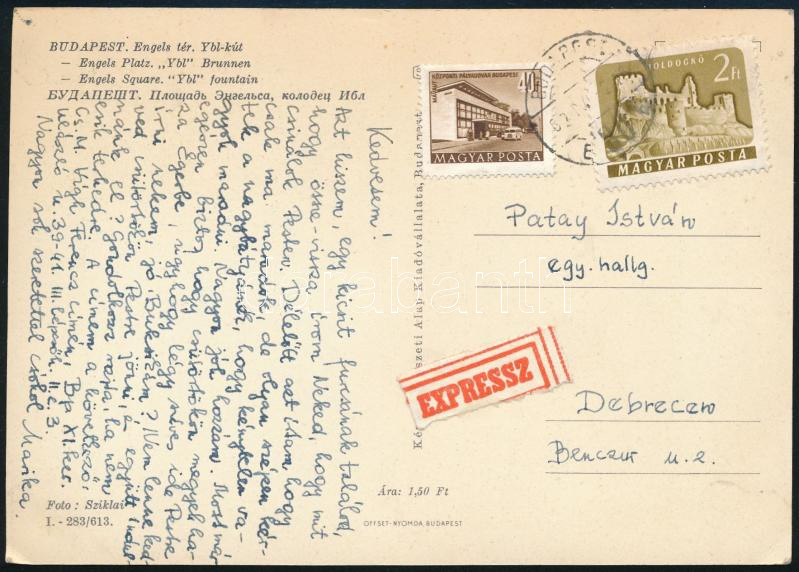 BUDAPEST. Engels tér. Ybl-kút
— Engels Platz. „Ybl" Brunnen
— Engels Square. "Ybl" fountain
БУДАПЕШТ. Площадь Энгельса, колодец Ибл
Kedvesem!
Azt hiszem, egy kicsit furcsának találod,
hogy össze-vissza írom Neked, hogy mit
csinálok Pesten. Délelőtt azt írtam, hogy
csak ma maradok, de olyan szépen kér-
tek a nagybátyámék, hogy kénytelen va-
gyok maradni. Nagyon jól hozzám. Most már
egészen biztos, hogy csütörtökön megyek ha-
za Egerbe, úgyhogy légy szíves ide Pestre
írni nekem, jó, Bukszám? Nem lenne ked-
ved csütörtökön Pestre jönni, és együtt indul-
nánk el? Gondolkozz rajta, ha nem
esik terhedre. A címem a következő:
Cs. M. Vigh Ferenc címén, Bp. XI. ker.
u. 39-41. III. lépcső. II. e. 3.
Nagyon sok szeretettel csókol Marika.
Foto : Sziklai
I. - 283/613.
Ára: 1,50 Ft
OFFSET-NYOMDA, BUDAPEST
Képzőművészeti Alap Kiadóvállalata, Budapest
KÖZPONTI PÁLYAUDVAR BUDAPEST
40f
MAGYAR POSTA
BUDAPEST
BOLDOGKŐ
2Ft
MAGYAR POSTA
Patay István
egy. hallg.
EXPRESSZ
Debrecen
Benczur u. 2.
darabanth